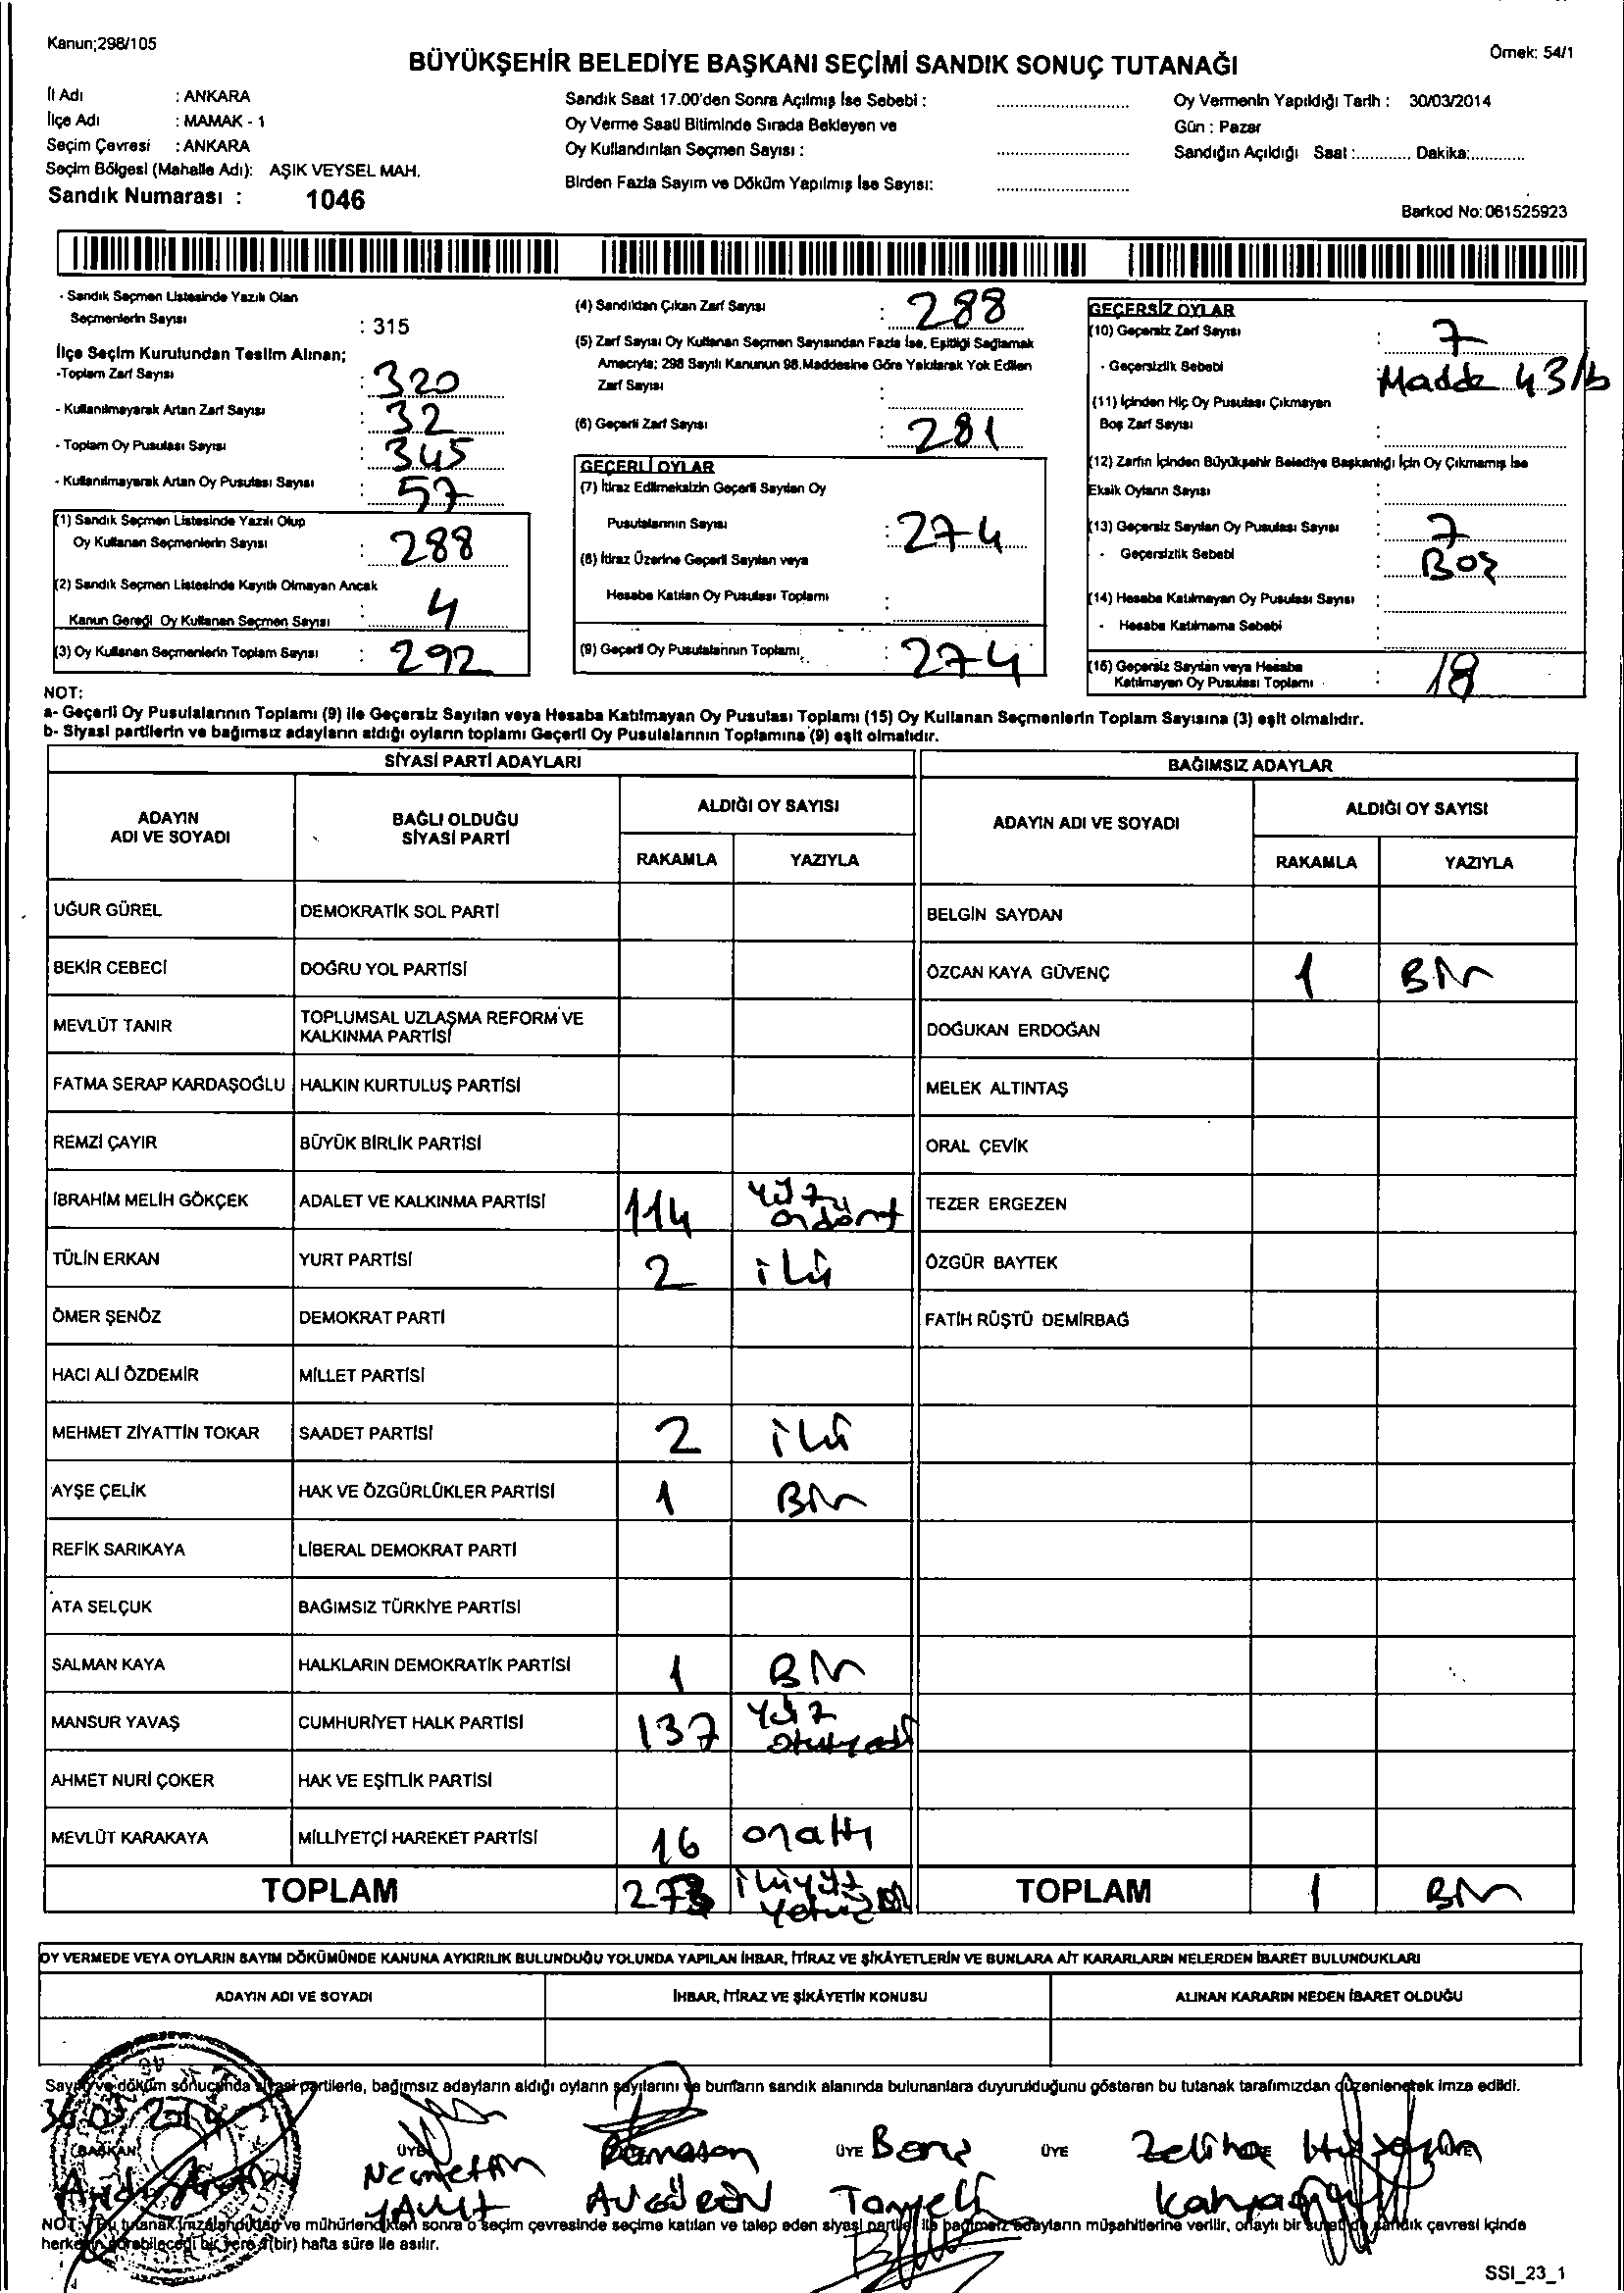 Kanun;298/105
Örnek: 54/1
BÜYÜKŞEHİR BELEDİYE BAŞKANI SEÇİMİ SANDIK SONUÇ TUTANAĞI
İl Adı : ANKARA
İlçe Adı : MAMAK - 1
Seçim Çevresi : ANKARA
Seçim Bölgesi (Mahalle Adı): AŞIK VEYSEL MAH.
Sandık Numarası : 1046
Sandık Saat 17.00'den Sonra Açılmış İse Sebebi :
Oy Verme Saati Bitiminde Sırada Bekleyen ve
Oy Kullandırılan Seçmen Sayısı :
Birden Fazla Sayım ve Döküm Yapılmış İse Sayısı:
Oy Vermenin Yapıldığı Tarih : 30/03/2014
Gün : Pazar
Sandığın Açıldığı Saat :............ Dakika:............
Barkod No: 061525923
- Sandık Seçmen Listesinde Yazılı Olan
Seçmenlerin Sayısı : 315
İlçe Seçim Kurulundan Teslim Alınan;
-Toplam Zarf Sayısı : 320
- Kullanılmayarak Artan Zarf Sayısı : 32
- Toplam Oy Pusulası Sayısı : 345
- Kullanılmayarak Artan Oy Pusulası Sayısı : 57
(1) Sandık Seçmen Listesinde Yazılı Olup
Oy Kullanan Seçmenlerin Sayısı : 288
(2) Sandık Seçmen Listesinde Kayıtlı Olmayan Ancak
Kanun Gereği Oy Kullanan Seçmen Sayısı : 4
(3) Oy Kullanan Seçmenlerin Toplam Sayısı : 292
(4) Sandıktan Çıkan Zarf Sayısı : 288
(5) Zarf Sayısı Oy Kullanan Seçmen Sayısından Fazla İse, Eşitliği Sağlamak
Amacıyla; 298 Sayılı Kanunun 98.Maddesine Göre Yakılarak Yok Edilen
Zarf Sayısı :
(6) Geçerli Zarf Sayısı : 281
GEÇERLİ OYLAR
(7) İtiraz Edilmeksizin Geçerli Sayılan Oy
Pusulalarının Sayısı : 274
(8) İtiraz Üzerine Geçerli Sayılan veya
Hesaba Katılan Oy Pusulası Toplamı :
(9) Geçerli Oy Pusulalarının Toplamı : 274
GEÇERSİZ OYLAR
(10) Geçersiz Zarf Sayısı : 7
- Geçersizlik Sebebi : Madde 43/b
(11) İçinden Hiç Oy Pusulası Çıkmayan
Boş Zarf Sayısı :
(12) Zarfın İçinden Büyükşehir Belediye Başkanlığı İçin Oy Çıkmamış İse
Eksik Oyların Sayısı :
(13) Geçersiz Sayılan Oy Pusulası Sayısı : 7
- Geçersizlik Sebebi : Boş
(14) Hesaba Katılmayan Oy Pusulası Sayısı :
- Hesaba Katılmama Sebebi :
(15) Geçersiz Sayılan veya Hesaba
Katılmayan Oy Pusulası Toplamı : 18
NOT:
a- Geçerli Oy Pusulalarının Toplamı (9) ile Geçersiz Sayılan veya Hesaba Katılmayan Oy Pusulası Toplamı (15) Oy Kullanan Seçmenlerin Toplam Sayısına (3) eşit olmalıdır.
b- Siyasi partilerin ve bağımsız adayların aldığı oyların toplamı Geçerli Oy Pusulalarının Toplamına (9) eşit olmalıdır.
SİYASİ PARTİ ADAYLARI
ADAYIN ADI VE SOYADI BAĞLI OLDUĞU SİYASİ PARTİ ALDIĞI OY SAYISI
RAKAMLA YAZIYLA
UĞUR GÜREL DEMOKRATİK SOL PARTİ
BEKİR CEBECİ DOĞRU YOL PARTİSİ
MEVLÜT TANIR TOPLUMSAL UZLAŞMA REFORM VE KALKINMA PARTİSİ
FATMA SERAP KARDAŞOĞLU HALKIN KURTULUŞ PARTİSİ
REMZİ ÇAYIR BÜYÜK BİRLİK PARTİSİ
İBRAHİM MELİH GÖKÇEK ADALET VE KALKINMA PARTİSİ 114 yüz ondört
TÜLİN ERKAN YURT PARTİSİ 2 iki
ÖMER ŞENÖZ DEMOKRAT PARTİ
HACI ALİ ÖZDEMİR MİLLET PARTİSİ
MEHMET ZİYATTİN TOKAR SAADET PARTİSİ 2 iki
AYŞE ÇELİK HAK VE ÖZGÜRLÜKLER PARTİSİ 1 Bir
REFİK SARIKAYA LİBERAL DEMOKRAT PARTİ
ATA SELÇUK BAĞIMSIZ TÜRKİYE PARTİSİ
SALMAN KAYA HALKLARIN DEMOKRATİK PARTİSİ 1 Bir
MANSUR YAVAŞ CUMHURİYET HALK PARTİSİ 137 yüz otuzyedi
AHMET NURİ ÇOKER HAK VE EŞİTLİK PARTİSİ
MEVLÜT KARAKAYA MİLLİYETÇİ HAREKET PARTİSİ 16 onaltı
TOPLAM 273 ikiyüz
BAĞIMSIZ ADAYLAR
ADAYIN ADI VE SOYADI ALDIĞI OY SAYISI
RAKAMLA YAZIYLA
BELGİN SAYDAN
ÖZCAN KAYA GÜVENÇ 1 Bir
DOĞUKAN ERDOĞAN
MELEK ALTINTAŞ
ORAL ÇEVİK
TEZER ERGEZEN
ÖZGÜR BAYTEK
FATİH RÜŞTÜ DEMİRBAĞ
TOPLAM 1 Bir
OY VERMEDE VEYA OYLARIN SAYIM DÖKÜMÜNDE KANUNA AYKIRILIK BULUNDUĞU YOLUNDA YAPILAN İHBAR, İTİRAZ VE ŞİKÂYETLERİN VE BUNLARA AİT KARARLARIN NELERDEN İBARET BULUNDUKLARI
ADAYIN ADI VE SOYADI İHBAR, İTİRAZ VE ŞİKÂYETİN KONUSU ALINAN KARARIN NEDEN İBARET OLDUĞU
Sayım ve döküm sonucunda siyasi partilerle, bağımsız adayların aldığı oyların sayılarını ve bunların sandık alanında bulunanlara duyurulduğunu gösteren bu tutanak tarafımızdan düzenlenerek imza edildi.
BAŞKAN ÜYE ÜYE ÜYE
Necmettin Ramazan Zeliha
NOT: Bu tutanak imzalandıktan ve mühürlendikten sonra o seçim çevresinde seçime katılan ve talep eden siyasi partiler ile bağımsız adayların müşahitlerine verilir, onaylı bir sureti de sandık çevresi içinde
herkesin görebileceği bir yere 1(bir) hafta süre ile asılır.
SSI_23_1